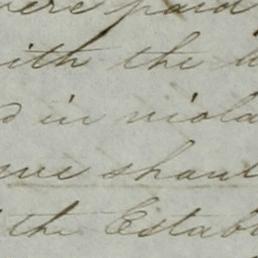 were paid
with the
d in viola
me shaw
the Establ